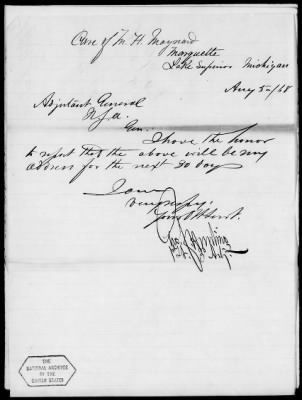 Care of M. H. Maynard
Marquette
Lake Superior Michigan
Aug 5th/68
Adjutant General
U.S.A.
Gen.
I have the honor
to report that the above will be my
address for the next 20 days
I am
Very respy.
Your Obt Servt.
THE
NATIONAL ARCHIVES
OF THE
UNITED STATES